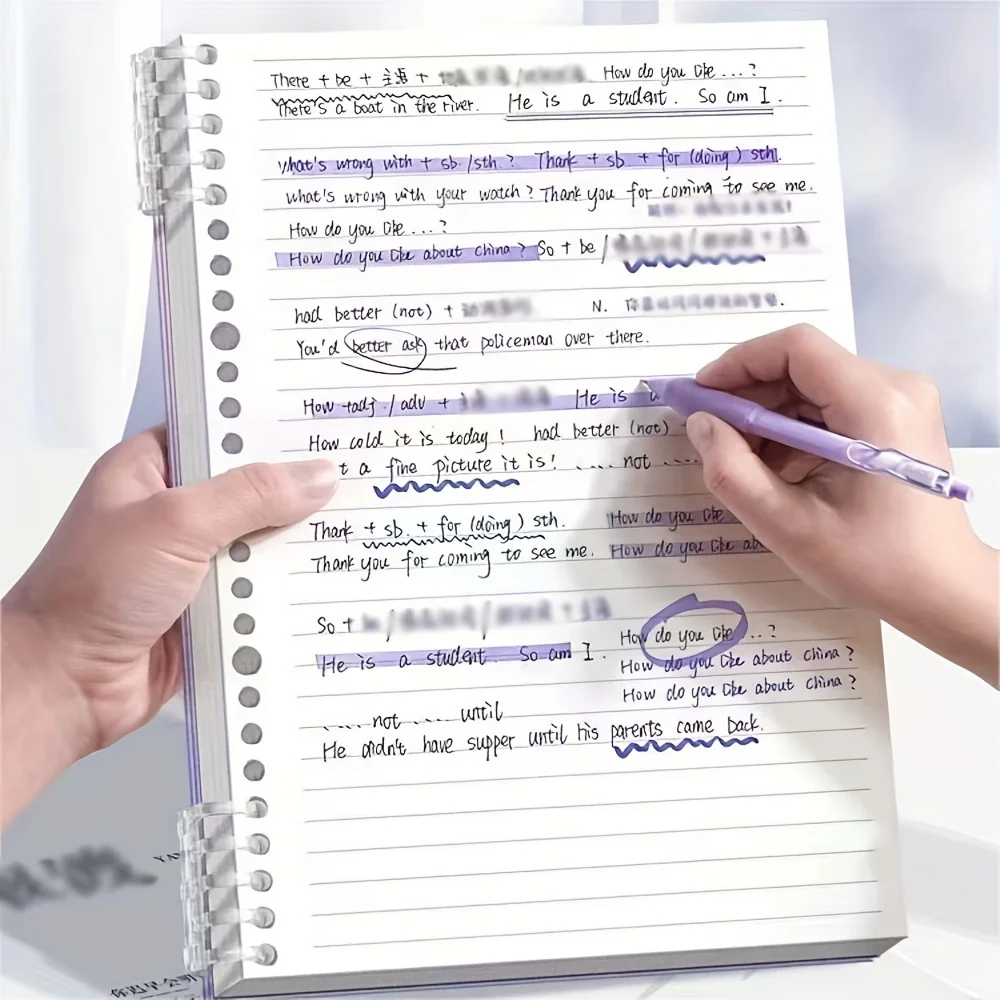 There + be + 主语 + How do you like ...?
There's a boat in the river. He is a student. So am I.
what's wrong with + sb. /sth.? Thank + sb + for (doing) sth.
what's wrong with your watch? Thank you for coming to see me.
How do you like ...?
How do you like about China? So + be /
had better (not) + N.
You'd better ask that policeman over there.
How +adj. / adv + He is a
How cold it is today! had better (not)
t a fine picture it is! .... not ....
Thank + sb. + for (doing) sth. How do you like
Thank you for coming to see me. How do you like ab
So +
He is a student. So am I. How do you like ...?
How do you like about China?
How do you like about China?
.... not .... until
He didn't have supper until his parents came back.